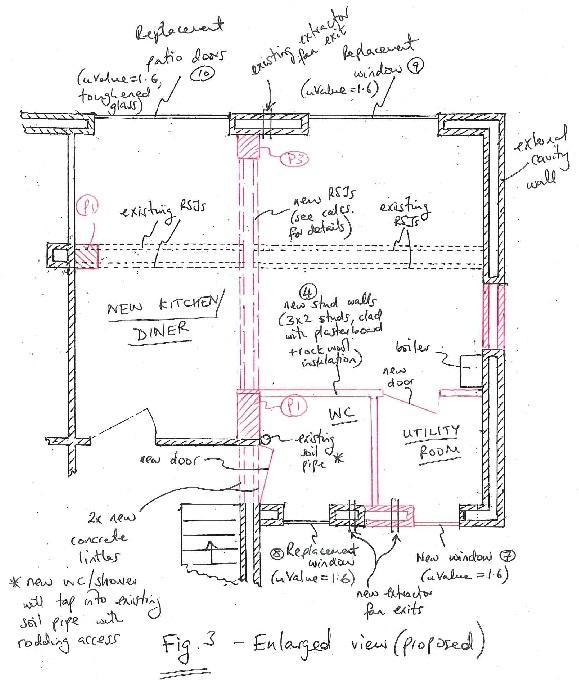 Replacement
patio doors
(uvalue=1.6, ⑩
toughened
glass)
existing extractor
fan exit
Replacement
window ⑨
(uvalue=1.6)
external
cavity
wall
P3
P1
existing RSJs
new RSJs
(see calcs.
for details)
existing
RSJs
NEW KITCHEN/
DINER
④
new stud walls
(3x2 studs, clad
with plasterboard
+rockwool
insulation)
boiler
new
door
P1
WC
UTILITY
ROOM
existing
soil
pipe *
new door
2x new
concrete
lintles
* new WC/shower
will tap into existing
soil pipe with
rodding access
⑧ Replacement
window
(uvalue=1.6)
New window ⑦
(uvalue=1.6)
new extractor
fan exits
Fig. 3 - Enlarged view (proposed)